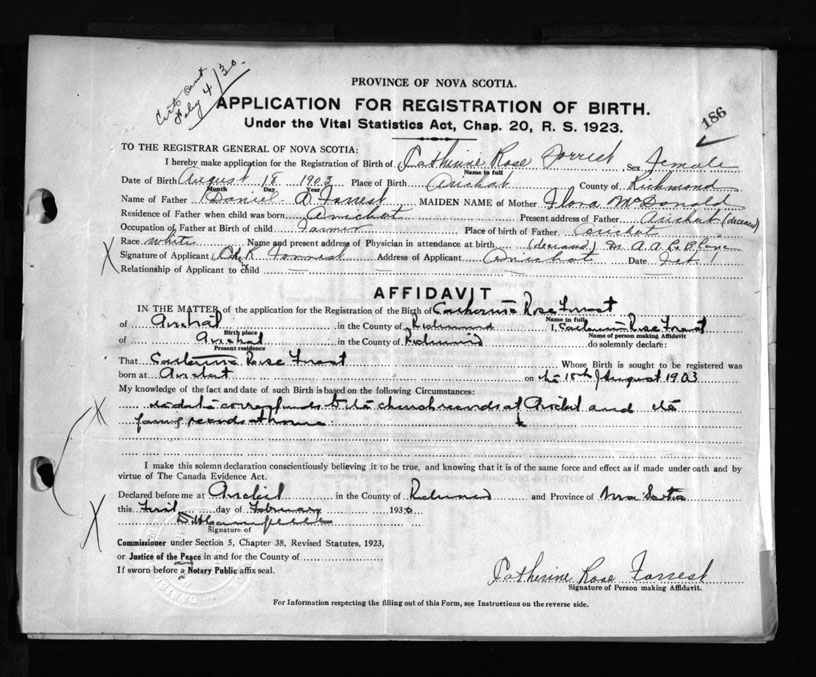 Cert. sent
Feby 4/30.
PROVINCE OF NOVA SCOTIA.
APPLICATION FOR REGISTRATION OF BIRTH.
186
Under the Vital Statistics Act, Chap. 20, R. S. 1923.
TO THE REGISTRAR GENERAL OF NOVA SCOTIA:
I hereby make application for the Registration of Birth of Catherine Rose Forrest Sex Female
Name in full
Date of Birth August 18 1903 Place of Birth Arichat County of Richmond
Month Day Year
Name of Father Daniel A Forrest MAIDEN NAME of Mother Flora McDonald
Residence of Father when child was born Arichat Present address of Father Arichat (deceased)
Occupation of Father at Birth of child Farmer Place of birth of Father Arichat
Race white Name and present address of Physician in attendance at birth (deceased) Dr A. A.
Signature of Applicant R Forrest Address of Applicant Arichat Date Feb. 1
Relationship of Applicant to child
AFFIDAVIT
IN THE MATTER of the application for the Registration of the Birth of Catherine Rose Forrest
Name in full
of Arichat in the County of Richmond I, Catherine Rose Forrest
Birth place Name of person making Affidavit
of Arichat in the County of Richmond do solemnly declare:
Present residence
That Catherine Rose Forrest Whose Birth is sought to be registered was
born at Arichat on the 18th August 1903
My knowledge of the fact and date of such Birth is based on the following Circumstances:
the date corresponds to the church records of Arichat and the
family records at home.
I make this solemn declaration conscientiously believing it to be true, and knowing that it is of the same force and effect as if made under oath and by
virtue of The Canada Evidence Act.
Declared before me at Arichat in the County of Richmond and Province of Nova Scotia
this First day of February 1930
Campbell
Signature of
Commissioner under Section 5, Chapter 38, Revised Statutes, 1923,
or Justice of the Peace in and for the County of
If sworn before a Notary Public affix seal.
Catherine Rose Forrest
Signature of Person making Affidavit.
For Information respecting the filling out of this Form, see Instructions on the reverse side.